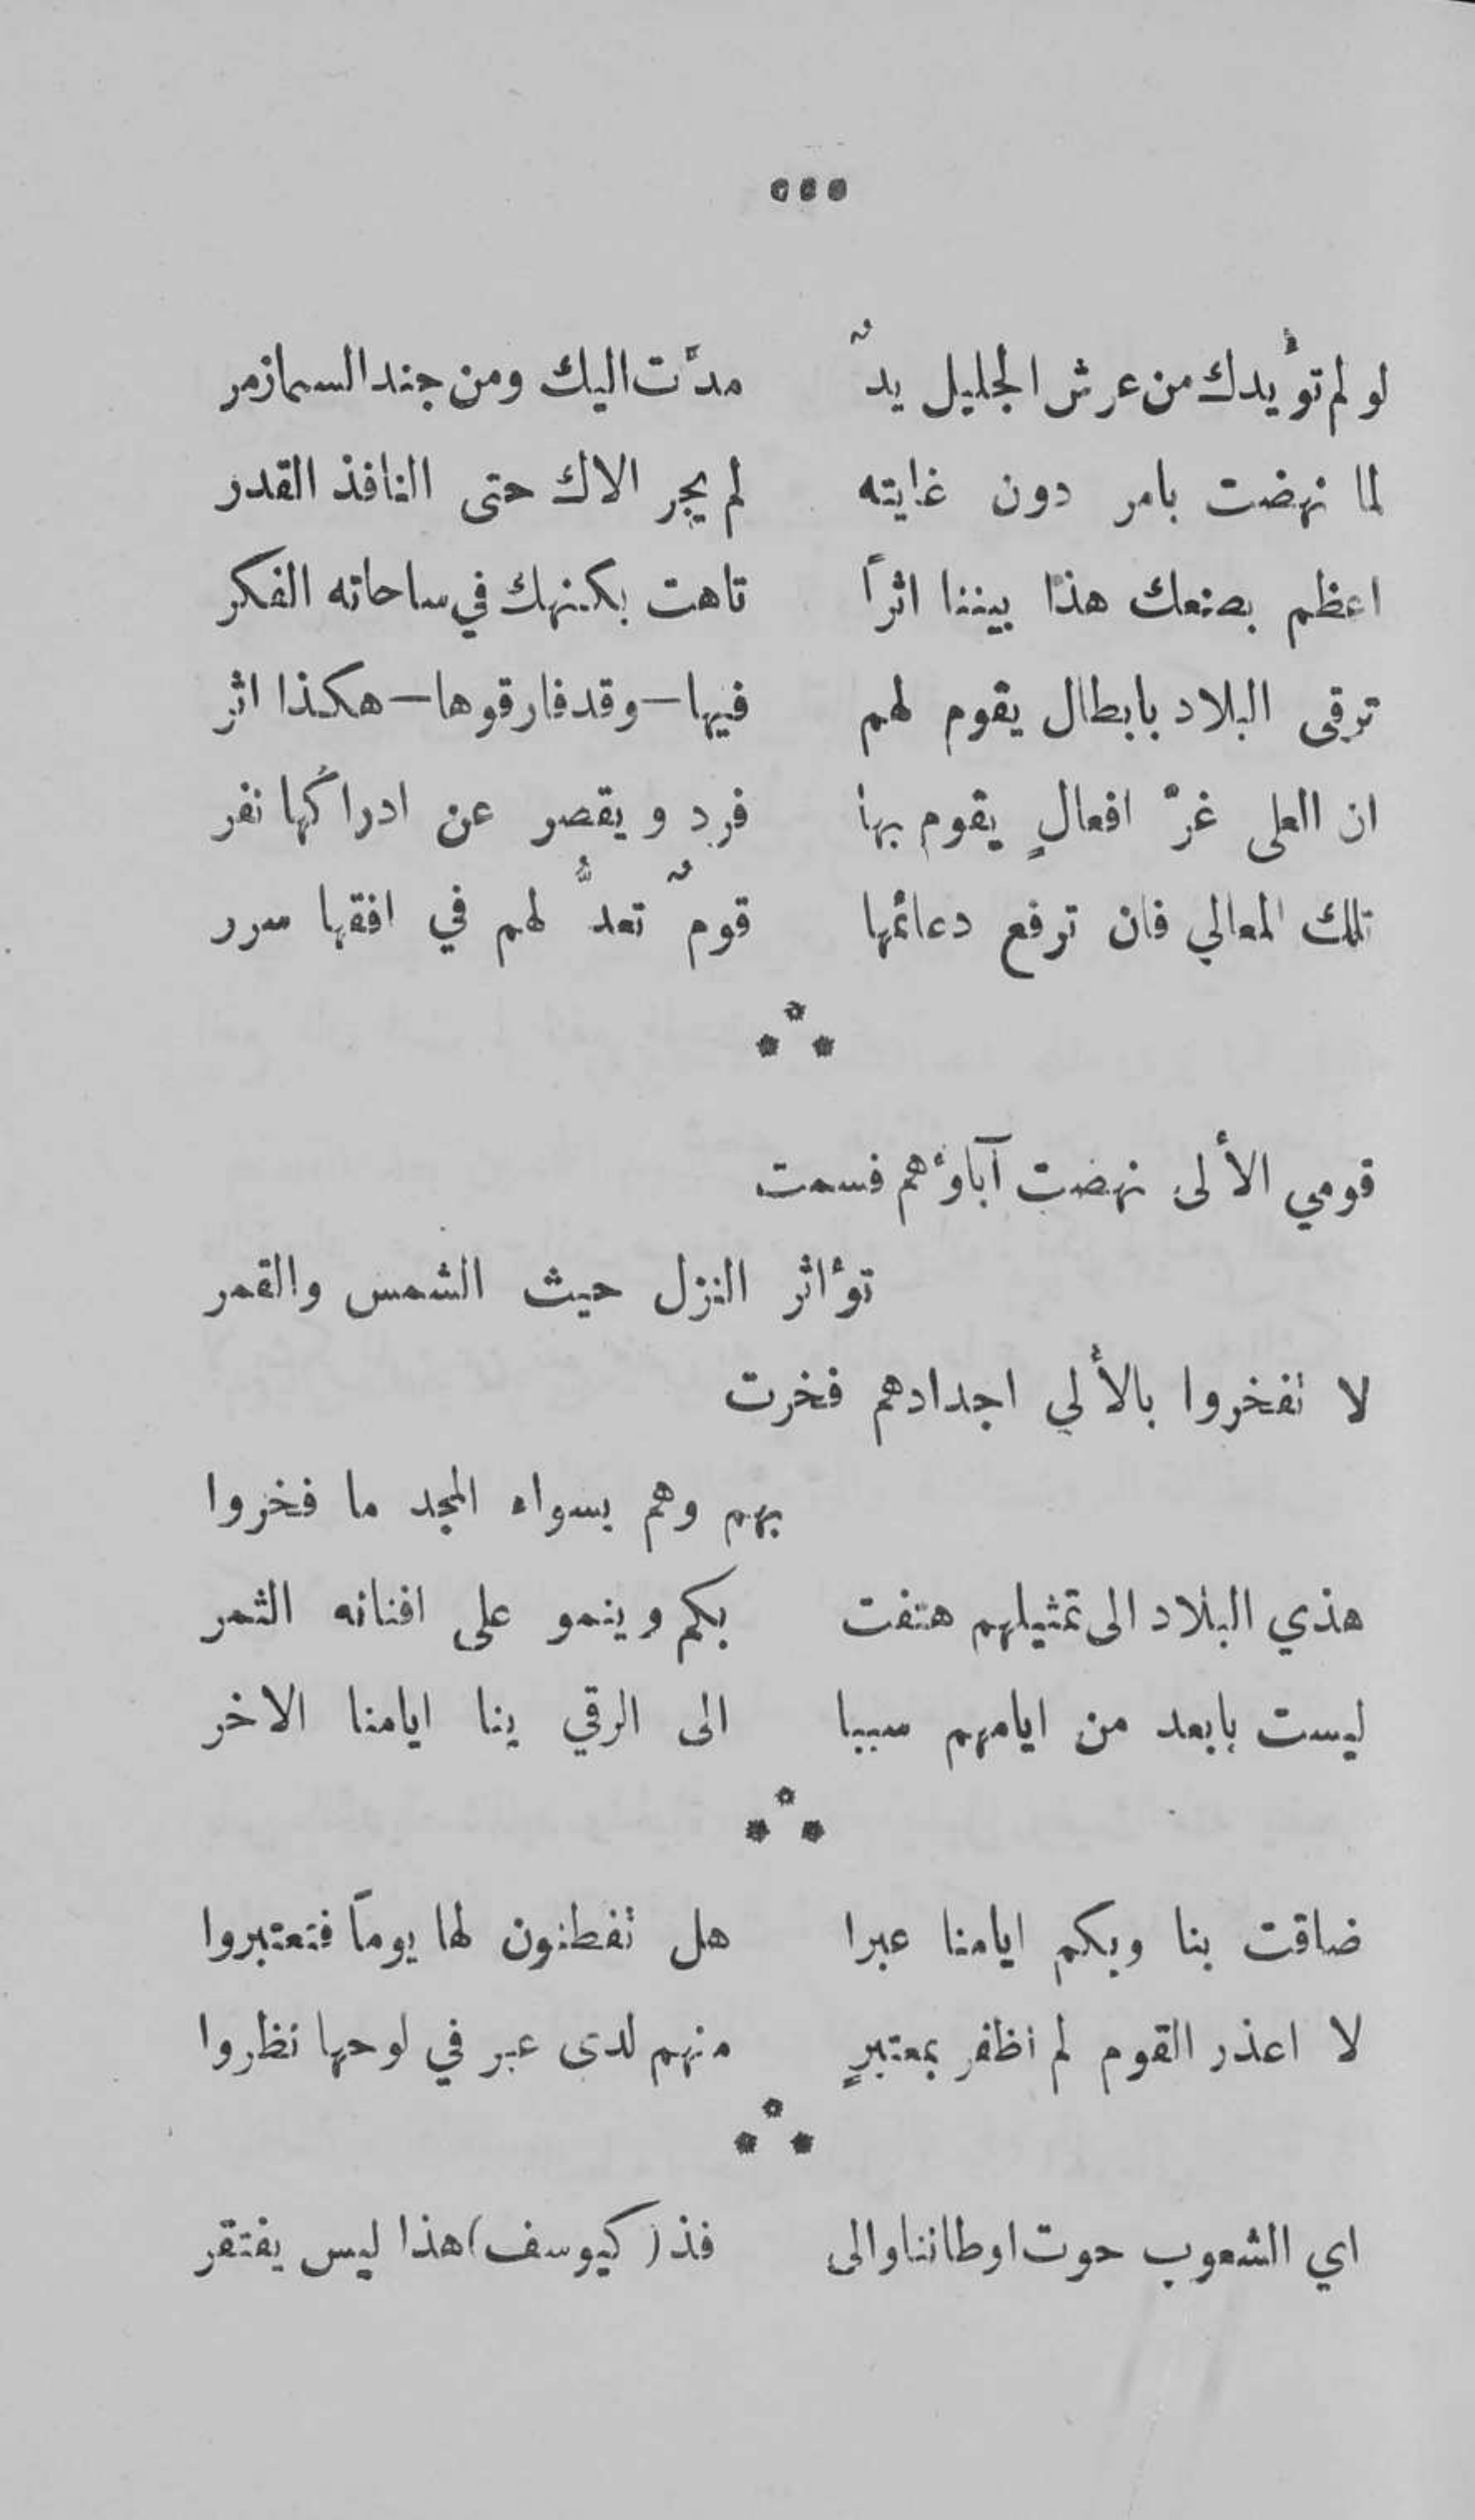 لو لم تؤيدك من عرش الجليل يدٌ مدَّت اليك ومن جند السما زمر
لما نهضت بامر دون غايته لم يجر الاك حتى النافذ القدر
اعظم بصنعك هذا بيننا اثراً تاهت بكنهك في ساحاته الفكر
ترقى البلاد بابطال يقوم لهم فيها — وقد فارقوها — هكذا اثر
ان العلى غرّ افعالٍ يقوم بها فرد ويقصر عن ادراكها نفر
تلك المعالي فان ترفع دعائمها قومٌ تعدُّ لهم في افقها سرر
قومي الألى نهضت آباؤهم فسمت
تؤاثر النزل حيث الشمس والقمر
لا تفخروا بالألي اجدادهم فخرت
بهم وهم بسواء المجد ما فخروا
هذي البلاد الى تمثيلهم هتفت بكم وينمو على افنانه الثمر
ليست بابعد من ايامهم سببا الى الرقي بنا ايامنا الاخر
ضاقت بنا وبكم ايامنا عبرا هل تفطنون لها يوماً فتعتبروا
لا اعذر القوم لم اظفر بمعتبرٍ منهم لدى عبر في لوحها نظروا
اي الشعوب حوت اوطاننا والى فذ (كيوسف) هذا ليس يفتقر